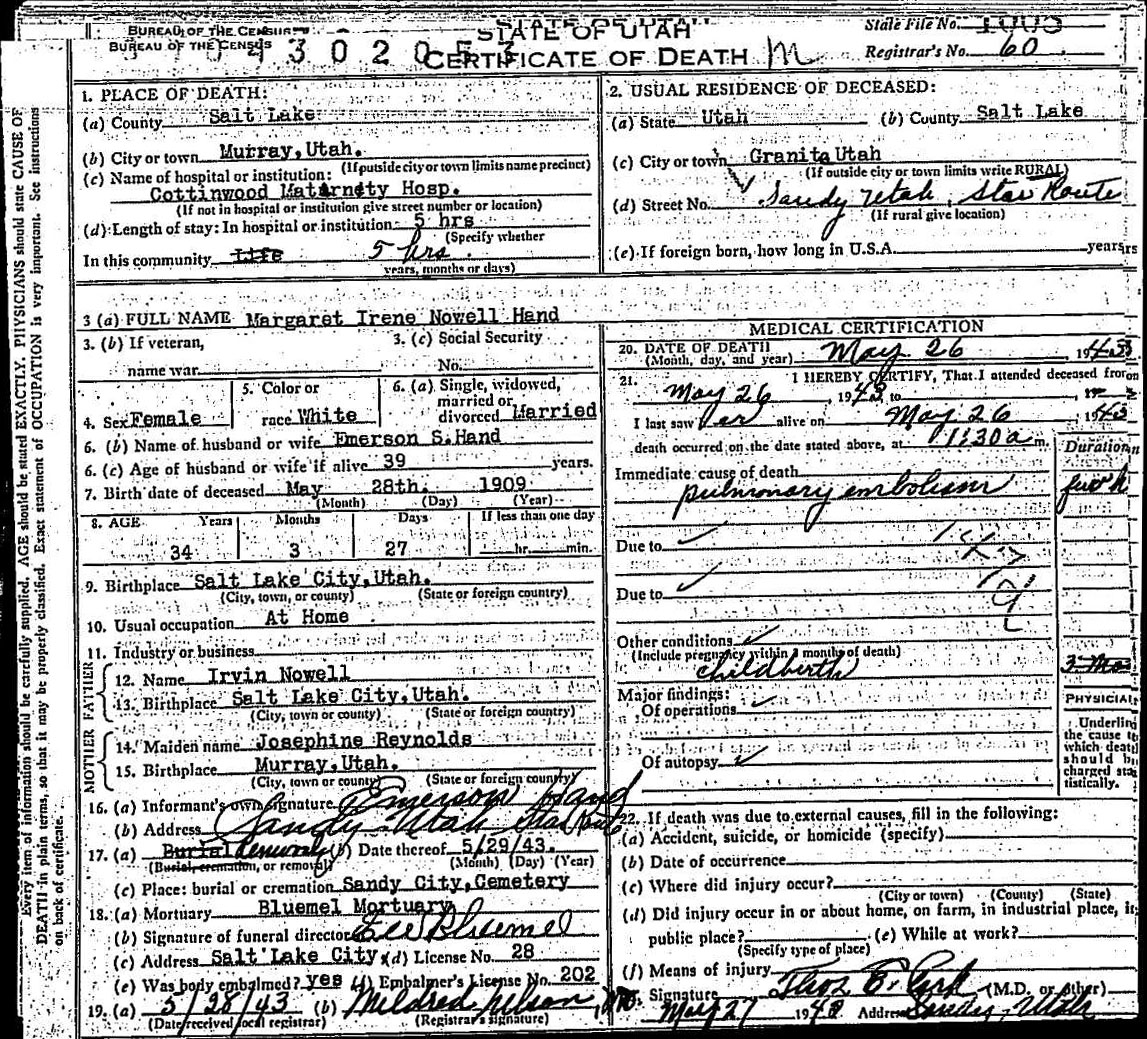 BUREAU OF THE CENSUS
BUREAU OF THE CENSUS
STATE OF UTAH
STATE OF UTAH
CERTIFICATE OF DEATH M
State File No. 1005
Registrar's No. 60
1. PLACE OF DEATH:
(a) County Salt Lake
(b) City or town Murray, Utah.
(If outside city or town limits name precinct)
(c) Name of hospital or institution:
Cottinwood Maternety Hosp.
(If not in hospital or institution give street number or location)
(d) Length of stay: In hospital or institution 5 hrs
(Specify whether
In this community Life 5 hrs.
years, months or days)
2. USUAL RESIDENCE OF DECEASED:
(a) State Utah (b) County Salt Lake
(c) City or town Granite Utah
(If outside city or town limits write RURAL)
(d) Street No. Sandy Utah, Star Route
(If rural give location)
(e) If foreign born, how long in U.S.A. years
3 (a) FULL NAME Margaret Irene Nowell Hand
3. (b) If veteran,
name war
3. (c) Social Security
No.
4. Sex Female
5. Color or
race White
6. (a) Single, widowed,
married or
divorced Married
6. (b) Name of husband or wife Emerson S. Hand
6. (c) Age of husband or wife if alive 39 years.
7. Birth date of deceased May 28th. 1909
(Month) (Day) (Year)
8. AGE Years Months Days If less than one day
34 3 27 hr. min.
9. Birthplace Salt Lake City, Utah.
(City, town, or county) (State or foreign country)
10. Usual occupation At Home
11. Industry or business
FATHER
12. Name Irvin Nowell
13. Birthplace Salt Lake City, Utah.
(City, town or county) (State or foreign country)
MOTHER
14. Maiden name Josephine Reynolds
15. Birthplace Murray, Utah.
(City, town or county) (State or foreign country)
16. (a) Informant's own signature Emerson Hand
(b) Address Sandy Utah Star Route
17. (a) Burial Removal (b) Date thereof 5/29/43.
(Burial, cremation, or removal) (Month) (Day) (Year)
(c) Place: burial or cremation Sandy City, Cemetery
18. (a) Mortuary Bluemel Mortuary
(b) Signature of funeral director Lee Bluemel
(c) Address Salt Lake City (d) License No. 28
(e) Was body embalmed? yes (f) Embalmer's License No. 202
19. (a) 5/28/43 (b) Mildred Nelson
(Date received local registrar) (Registrar's signature)
MEDICAL CERTIFICATION
20. DATE OF DEATH
(Month, day, and year) May 26 1943
21. I HEREBY CERTIFY, That I attended deceased from
May 26, 1943 to
I last saw her alive on May 26 1943
death occurred on the date stated above, at 11:30 a m.
Duration
Immediate cause of death
pulmonary embolism
Due to
Due to
Other conditions
(Include pregnancy within 3 months of death)
childbirth
3 Mo
Major findings:
Of operations
Of autopsy
PHYSICIAN
Underline
the cause to
which death
should be
charged sta
tistically.
22. If death was due to external causes, fill in the following:
(a) Accident, suicide, or homicide (specify)
(b) Date of occurrence
(c) Where did injury occur?
(City or town) (County) (State)
(d) Did injury occur in or about home, on farm, in industrial place, i
public place? (e) While at work?
(Specify type of place)
(f) Means of injury
Signature (M.D. or other)
May 27 1943 Address Sandy, Utah
Every item of information should be carefully supplied. AGE should be stated EXACTLY. PHYSICIANS should state CAUSE OF
DEATH in plain terms, so that it may be properly classified. Exact statement of OCCUPATION is very important. See instructions
on back of certificate.